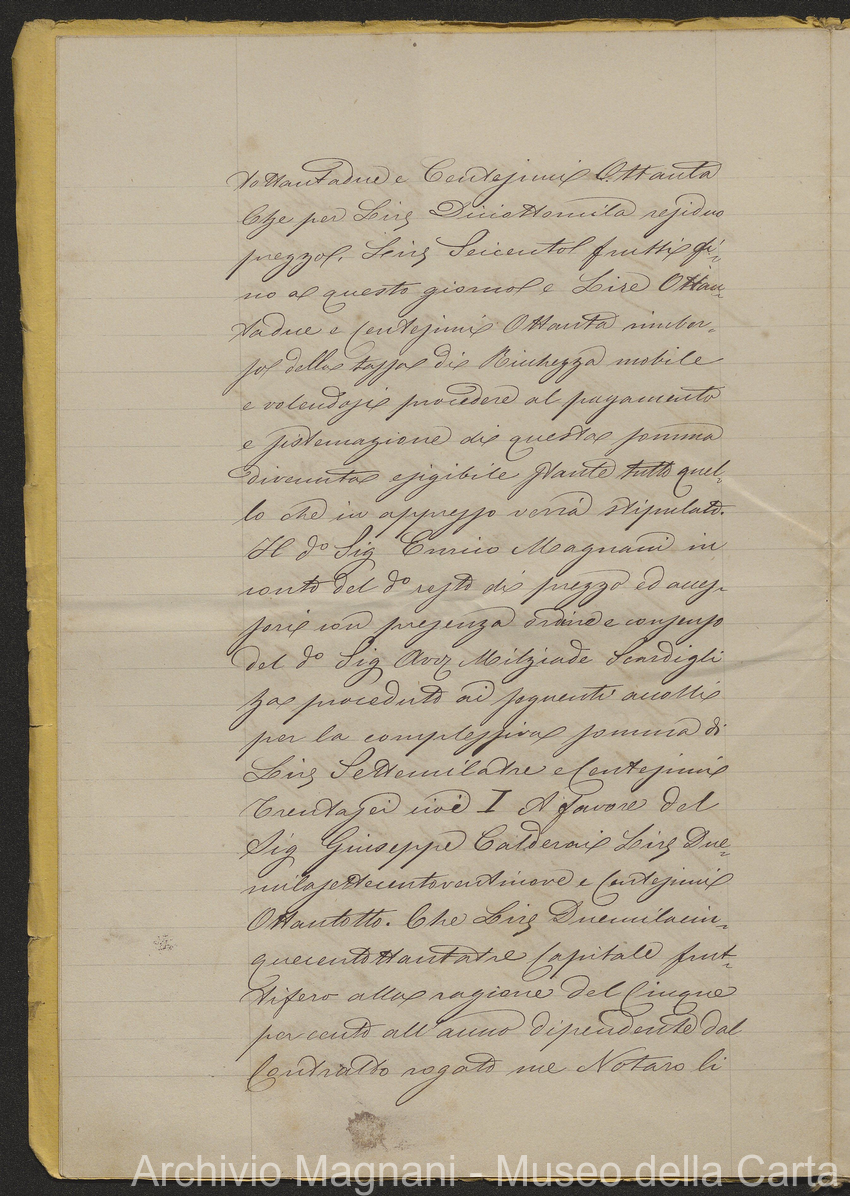 tottantadue e Centesimi Ottanta
Che per Lire Diciottomila residuo
prezzo, Lire Seicento frutti fi-
no a questo giorno e Lire Ottan-
tadue e Centesimi Ottanta rimbor-
so della tassa di Ricchezza mobile
e volendosi procedere al pagamento
e sistemazione di questa somma
divenuta esigibile stante tutto quel-
lo che in appresso verrà stipulato.
Il do Sig Enrico Magnani in
conto del do resto di prezzo ed acces-
sori con presenza ordine e consenso
del do Sig Avv Milziade Scardigli
ha proceduto ai seguenti accolli
per la complessiva somma di
Lire Settemilatre e Centesimi
Trentasei cioè I A favore del
Sig Giuseppe Calderai Lire Due-
milasettecentoventinove e Centesimi
Ottantotto. Che Lire Duemilacin-
quecentottantatre Capitale frut-
tifero alla ragione del Cinque
per cento all'anno dipendente dal
Contratto rogato me Notaro li
Archivio Magnani - Museo della Carta